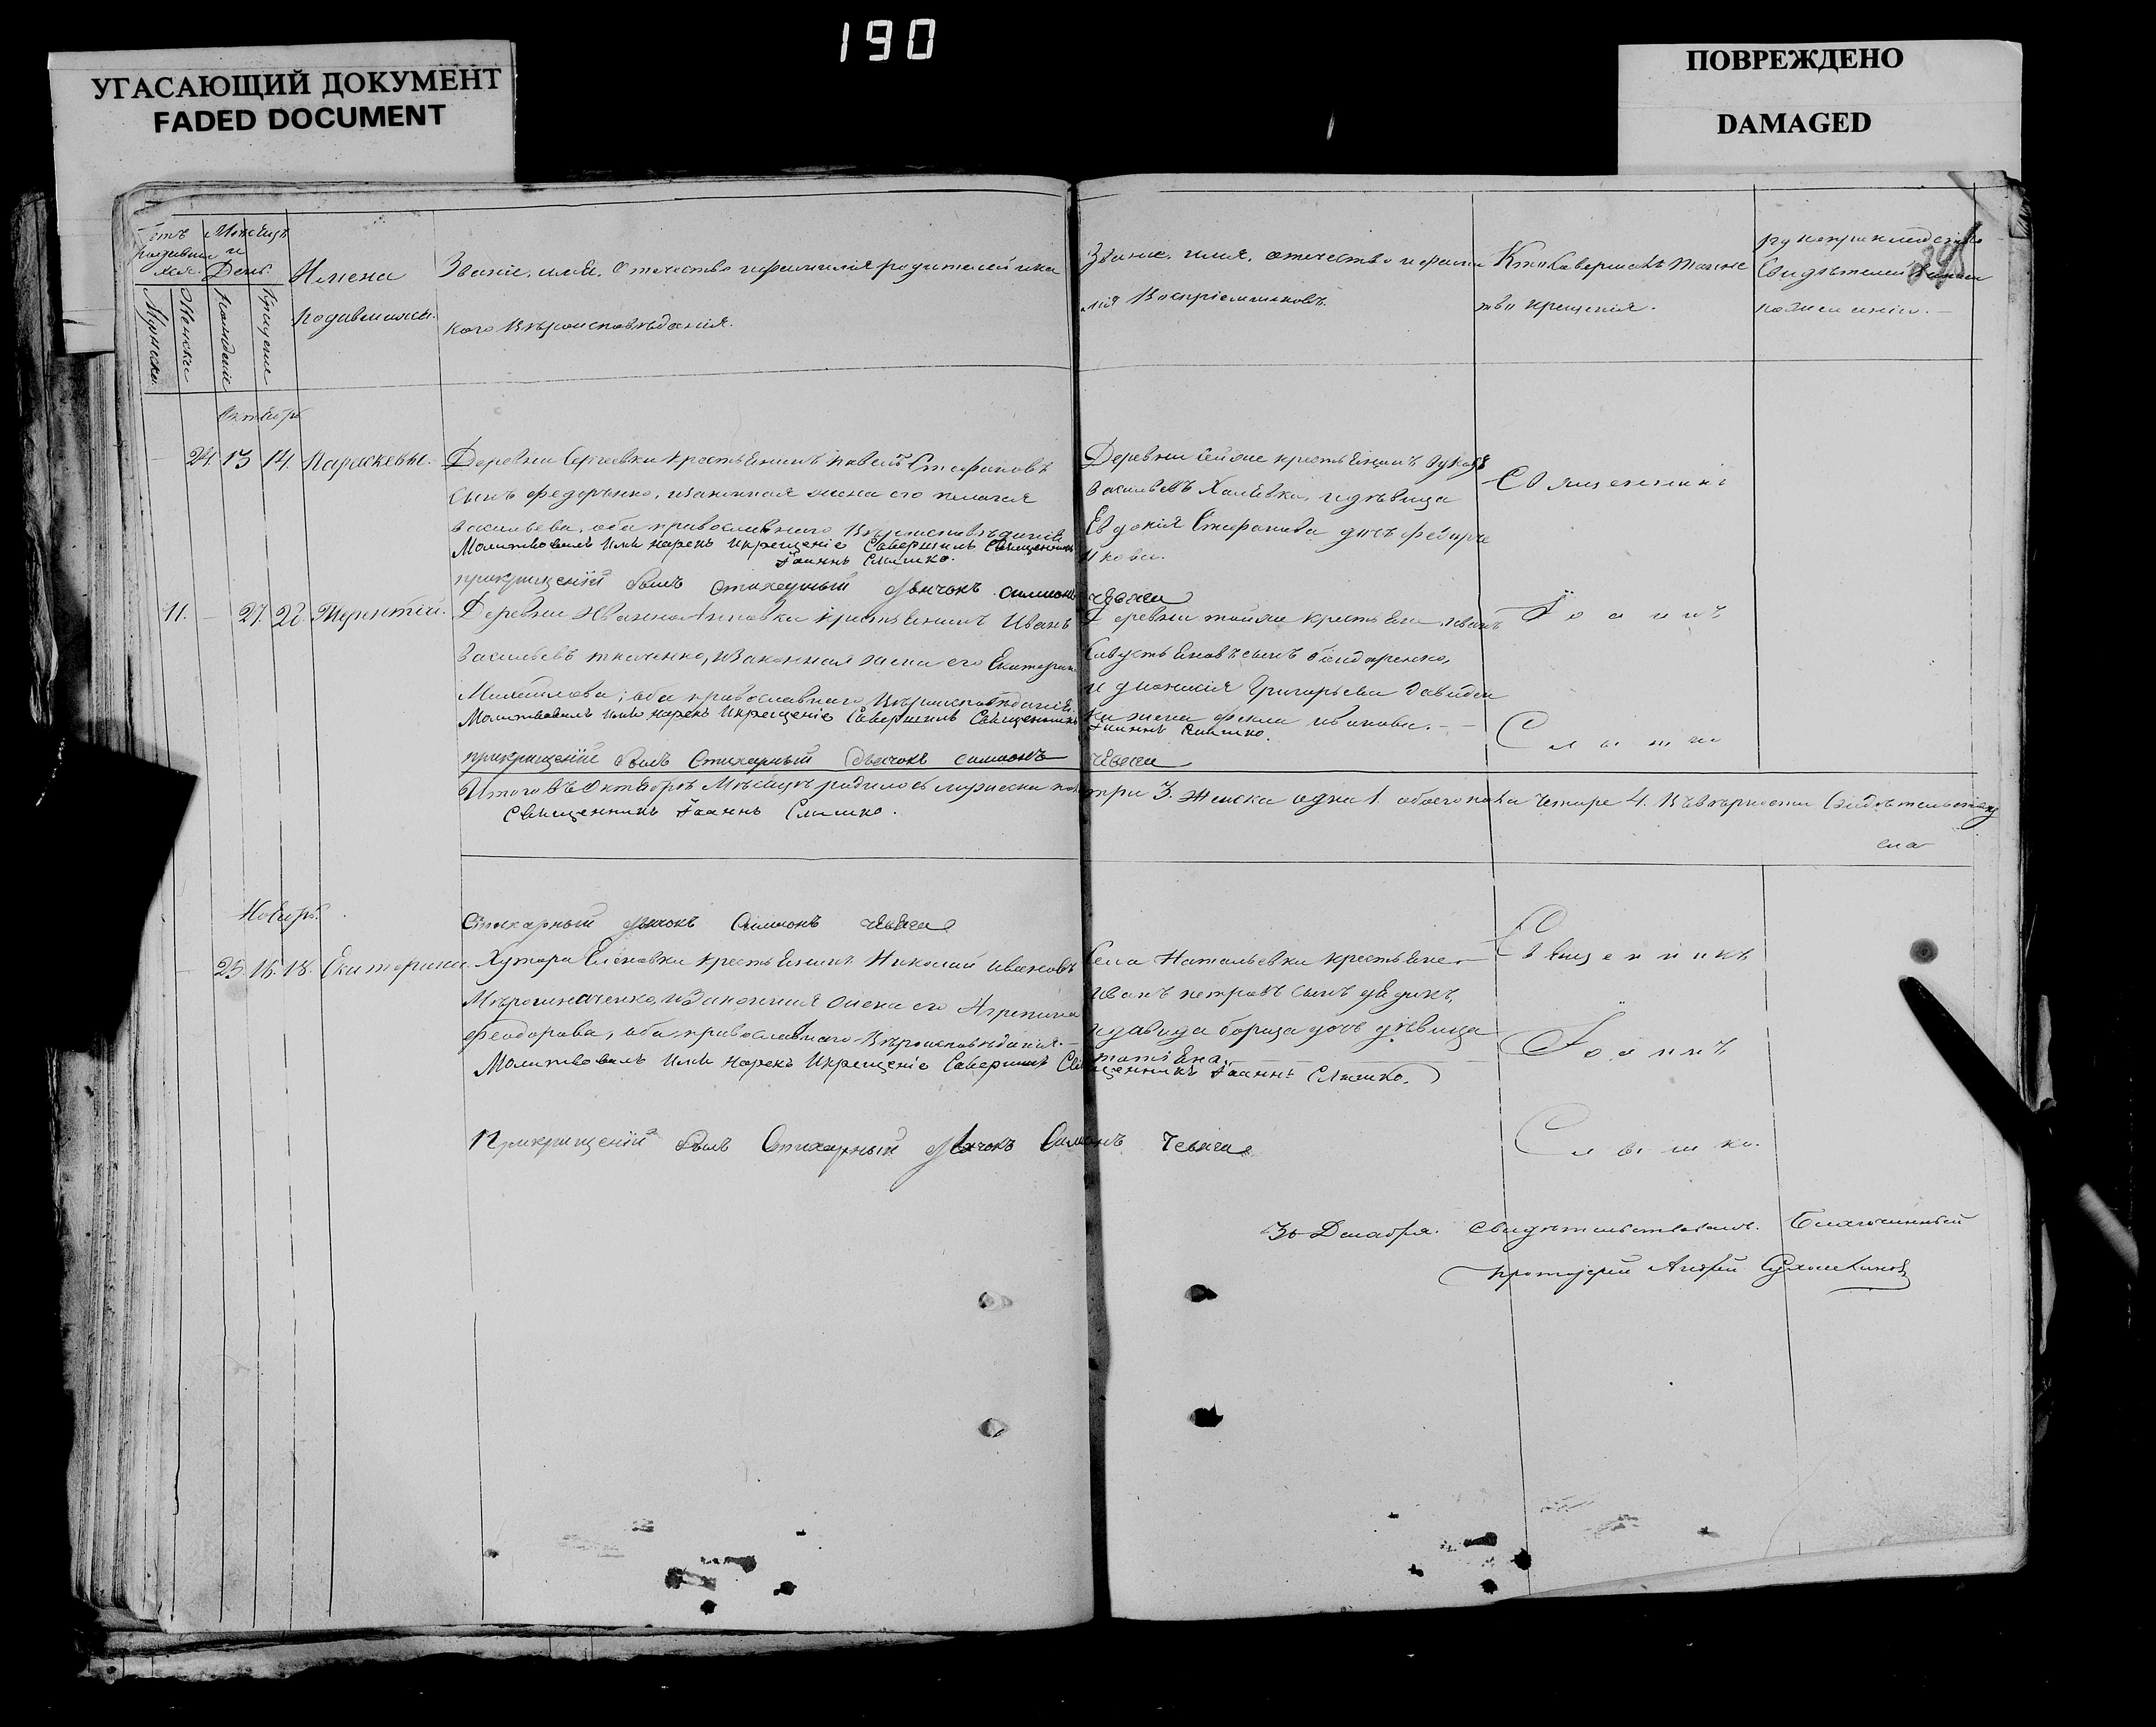 190
УГАСАЮЩИЙ ДОКУМЕНТ
FADED DOCUMENT
ПОВРЕЖДЕНО
DAMAGED
Мѣсяцъ
и
День.
Имена
родившихся.
Мужска
Женска
Рожденіе
Крещеніе
Званіе, имя, отечество и фамилія родителей и ка
кого вѣроисповѣданія.
Званіе, имя, отечество и фами
лія Воспріемниковъ.
Кто совершалъ таинс
тво крещенія.
рукоприкладство
Свидѣтелей записи
по желанію.
Октябрь
24. 13 14. Параскевы.
Деревни Сергеевки крестьянинъ Павелъ Стефановъ
сынъ Федоренко, и законная жена его Пелагея
Васильева, оба православнаго Вѣроисповѣданія
Молитвовалъ Имя нарекъ И крещеніе Совершилъ Священникъ
Іоаннъ Слышко.
при крищеніи былъ стихарный дьячокъ Симионъ Чевяга
Деревни сей же крестьянинъ
Васильевъ и дѣвица
Евдокія Стефанова дочь
кова.
Священникъ
11. — 27. 28. Терентій.
Деревни Иванно Анновки крестьянинъ Иванъ
Васильевъ Ткаченко, и законная жена его Екатерина
Михайлова; оба православнаго Вѣроисповѣданія.
Молитвовалъ Имя нарекъ И крещеніе Совершилъ Священникъ
Іоаннъ Слышко.
при крищеніи былъ Стихарный дьячокъ Симионъ Чевяга
Деревни той же крестьяни. Иванъ
Савустьяновъ сынъ Бондаренко,
и Діонисія Григорьева Давиден
ка жена Фекла Иванова. —
Іоаннъ
Слышко
Итого въ Октябрѣ Мѣсяцѣ родилось мужеска пола три 3. женска одна 1. обоего пола четыре 4. Въ вѣрности Свидѣтельству
ема
Священникъ Іоаннъ Слышко.
Стихарный дьячокъ Симионъ Чевяга
Ноябрь.
25. 16. 18. Екатерина.
Хутора Еленовки крестьянинъ Николай Ивановъ
Мѣрошниченко, и Законная жена его Агрепина
Феодорова, оба православнаго Вѣроисповѣданія. —
Молитвовалъ Имя нарекъ И крещеніе Совершилъ Священникъ Іоаннъ Слышко.
При крищеніи былъ Стихарный дьячокъ Симионъ Чевяга
Села Натальевки крестьяне
Иванъ Петровъ сынъ Дядикъ,
и Давида Борща дочь дѣвица
Татіяна.
Священникъ
Іоаннъ
Слышко.
30 Декабря. Свидѣтельствовалъ. Благочинный
протоіерей Андрей